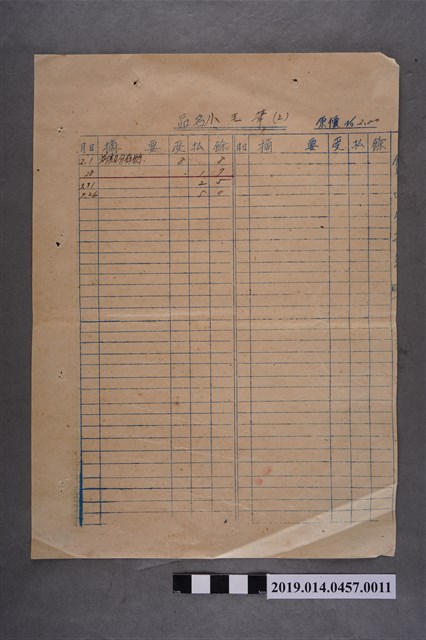 品名 小毛筆(上) 原價 @ 2.00
月日 摘要 受 払 餘 月日 摘要 受 払 餘
2.1 8 8
28 1 7
3.31 2 5
5 0
2019.014.0457.0011